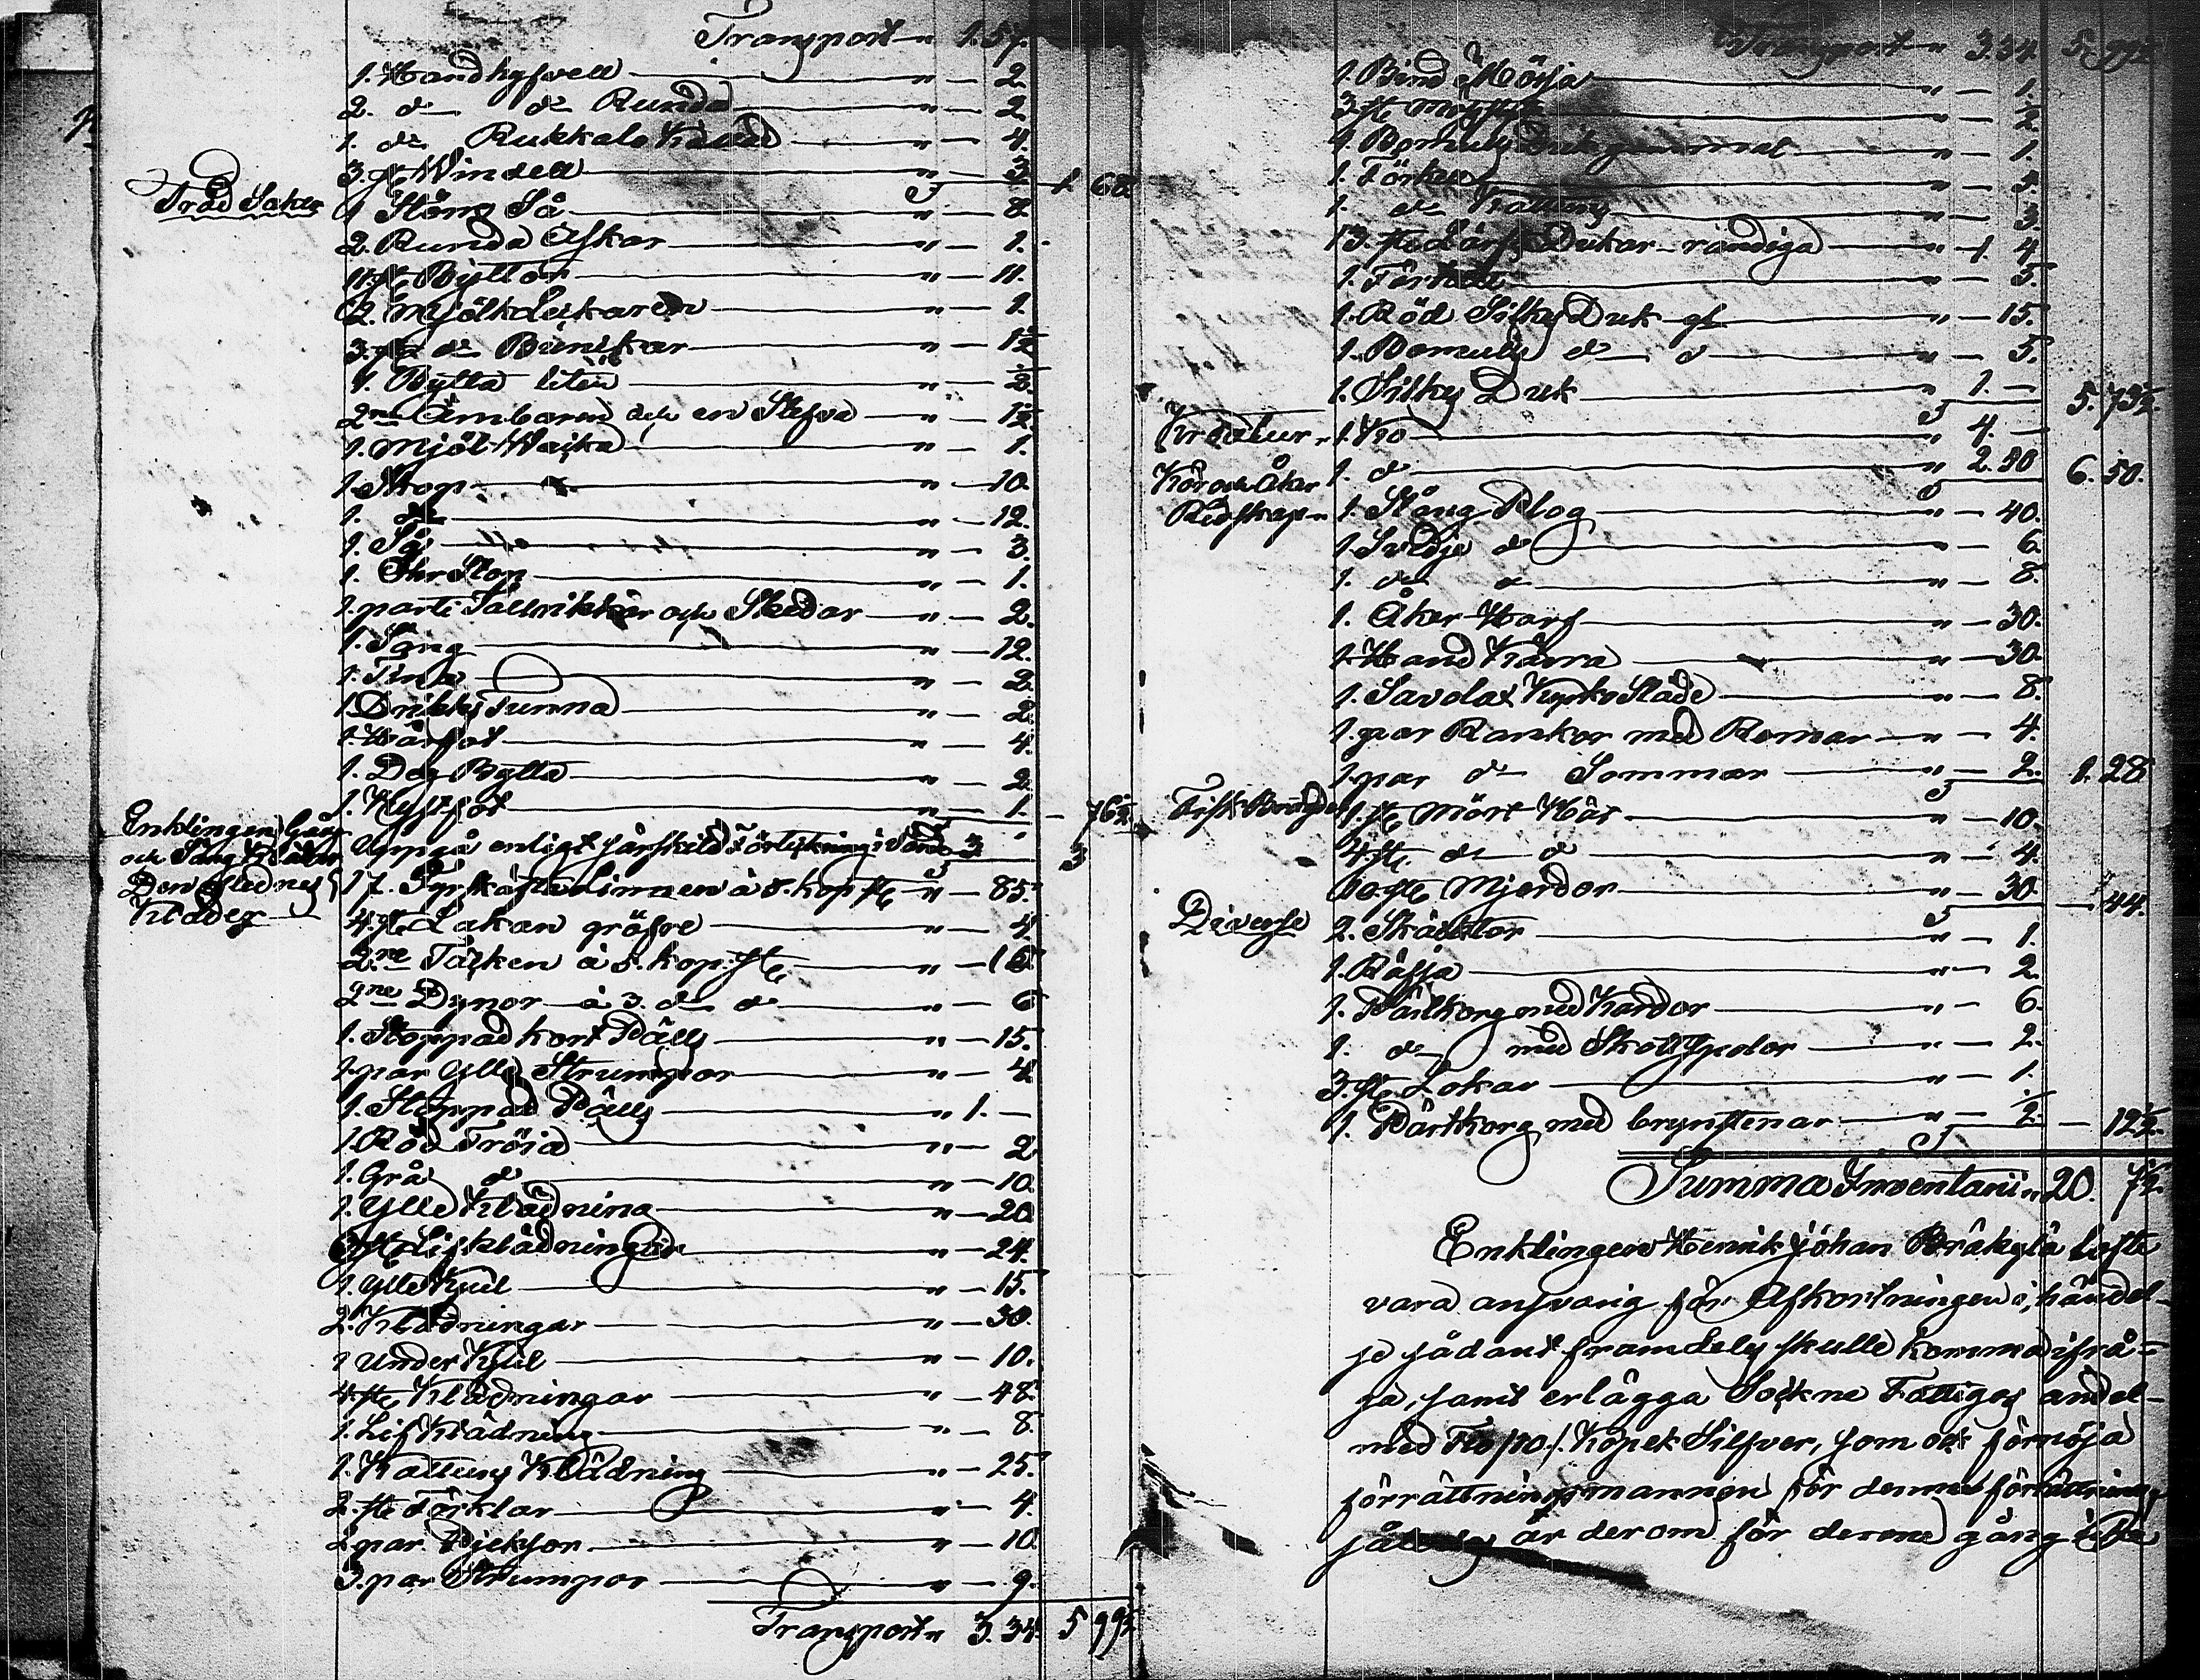 Transport " 1.57.
1. Handhyfvell " — 2.
2. d:o d:o Runda " — 2
1. d:o " — 4.
3. st Windell " — 3. 1 68
Träd Saker 1 Stång Så " — 8.
2. Runda Askar " — 1.
11. st Byttor " — 11.
2. Mjölk " — 1.
3. st d:o Bunikar " — 1½
1. Bytta liten " — ½
2ne Ämbaren och en Slefva " — 1½
1. Mjöl Wacka " — 1.
1. Stop " — 10.
1. d:o " — 12.
1. Så " — 3.
1. " — 1.
1. parti Tallrikkar och Skedar " — 2.
1. Säng " — 12.
1. Tina " — 2.
1. Dricks Tunna " — 2.
1. " — 4.
1. Deg Bytta " — 2.
1. " — 1. — 76½
Enklingens Gång
och Säng Kläder Uppgå enligt särskild Förtekning i Värde 3. 3
Den Aflednes 17. Fyrskäfta Linnen à 5. kop st " — 85.
Kläder
4. st Lakan gröfre " — 4
2ne Täcken à 8. kop. st " — 16.
2ne Dynor à 3. d:o d:o " — 6
1. Stoppad kort Pälls " — 15.
1. par Ylle Strumpor " — 4.
1. Stoppad Pälls " 1. —
1. Röd Tröja " — 2
1. Grå d:o " — 10.
1. Ylle Klädning " — 20.
st Lifklädningar " — 24.
1. Ylle Kjol " — 15.
2. Klädningar " — 30.
1 Under Kjol " — 10.
4. st Klädningar " — 48.
1. Lif Klädning " — 8.
1. Kattuns Klädning " — 25.
2. st Förklar " — 4.
2 par Pjeksor " — 10.
3. par Strumpor " — 9.
Transport " 3. 34. 5 99½
Transport " 3.34. 5. 99½
1. Bind Mössa " — 1.
3 st " — ½
1. Bomuls Duk gammal " — 1.
1. " — 3.
1. d:o Kattuns " — 3.
13. st Dukar randiga " — 1. 4
1. " — 5.
1. Röd Silkes Duk gl " — 15.
1. Bomuls d:o d:o " — 5.
1. Silkes Duk " 1. — 5. 73½
Kreatur " 1. Ko " 4. —
1. d:o " 2. 50 6. 50.
Kör och Åker
Redskap " 1. Stång Plog " — 40.
1. Svedje d:o " — 6.
1. d:o d:o " — 8.
1. Åker Harf " — 30.
1. Hand Kärra " — 30.
1. Savolax Kyrko Släde " — 8.
1. par Rankor med Remar " — 4.
1. par d:o Sommar " — 2. 1. 28
Fisk Bragder 1. st Mört Nät " — 10.
4. st d:o d:o " — 4.
10 st Mjerdor " — 30. — 44.
Diverse 2. Skäcktor " — 1.
1. Räfsa " — 2.
1. Pärtkorg med Kardor " — 6.
1. d:o med Skottspolar " — 2.
3. st Lokar " — 1.
1. Pärtkorg med brynstenar " — ½ — 12½
Summa Inventarii " 20. 7½
Enklingen Henrik Johan lofte
vara ansvarig för Afkortningen i händel-
se sådant framdeles skulle komma ifrå-
ga, samt erlägga Sockne Fattigas andel
med kopek Silfver, som ock förnöja
förrättningsmannen för denna förrättning
är derom för denna gång